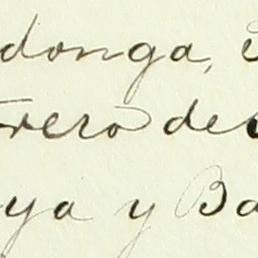 donga,
rero de
ya y Ba